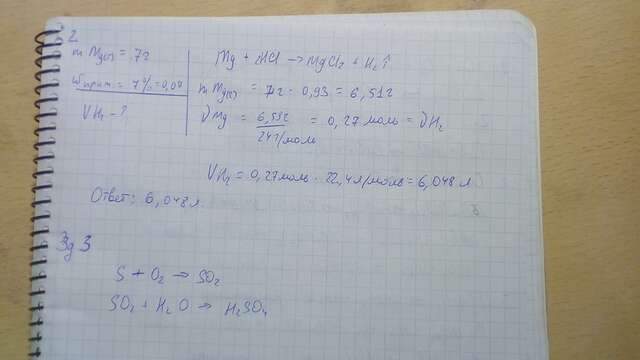 2
m Mg(т) = 7г
ω прим = 7% = 0,07
VH₂ - ?
Mg + 2HCl → MgCl₂ + H₂↑
m Mg(т) = 7г · 0,93 = 6,51г
ϑMg = 6,51г / 24г/моль = 0,27 моль = ϑH₂
VH₂ = 0,27моль · 22,4л/моль = 6,048 л
Ответ: 6,048л.
Зд 3
S + O₂ → SO₂
SO₂ + H₂O → H₂SO₄